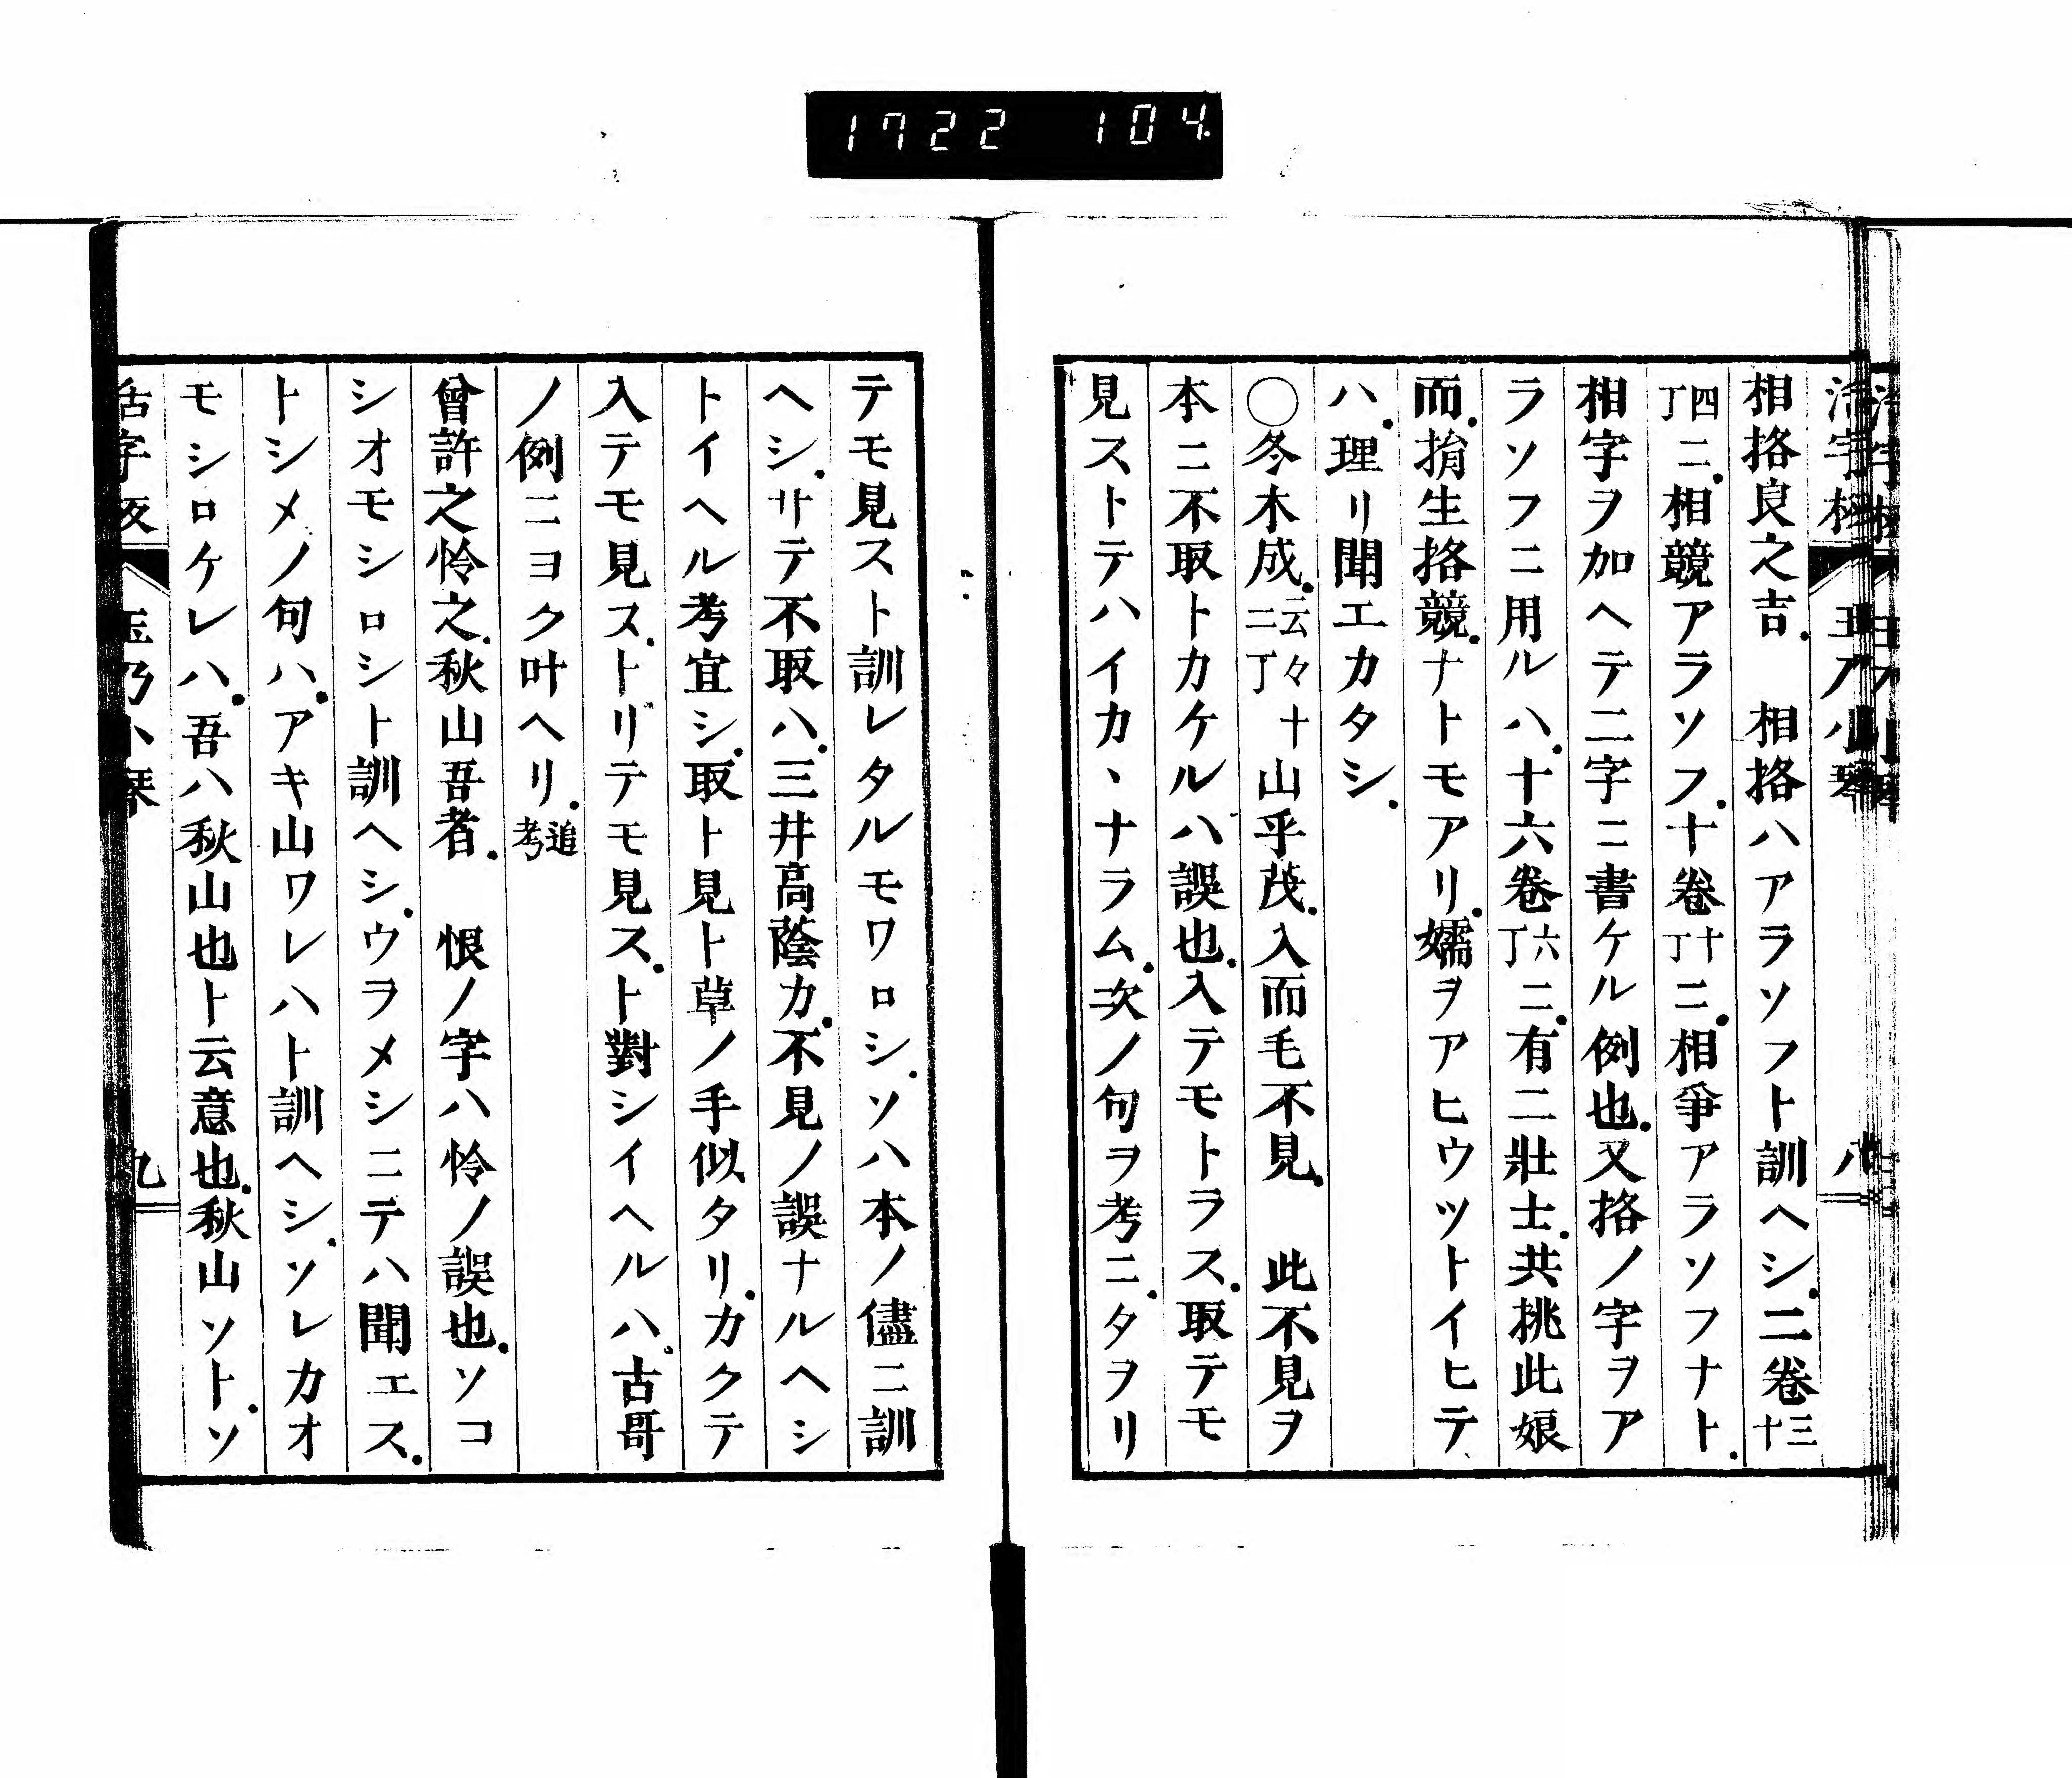 1722 104
相挌良之吉．　相挌ハアラソフト訓ヘシ．二卷十三
丁四ニ．相競アラソフ．十卷丁十ニ．相爭アラソフナト．
相字ヲ加ヘテ二字ニ書ケル例也．又挌ノ字ヲア
ラソフニ用ルハ．十六卷丁六ニ．有二壯士．共挑此娘
而．捐生挌競．ナトモアリ．嬬ヲアヒウツトイヒテ
ハ．理リ聞エカタシ．
〇冬木成．云々二丁十山乎茂．入而毛不見．　此不見ヲ
本ニ不取トカケルハ誤也．入テモトラス．取テモ
見ストテハイカヽナラム．次ノ句ヲ考ニ．タヲリ
テモ見スト訓レタルモワロシ．ソハ本ノ儘ニ訓
ヘシ．サテ不取ハ．三井高蔭カ．不見ノ誤ナルヘシ
トイヘル考宜シ．取ト見ト草ノ手似タリ．カクテ
入テモ見ス．トリテモ見ス．ト對シイヘルハ．古哥
ノ例ニヨク叶ヘリ．追考
曾許之怜之．秋山吾者．　恨ノ字ハ怜ノ誤也．ソコ
シオモシロシト訓ヘシ．ウヲメシニテハ聞エス．
トシメノ句ハ．アキ山ワレハト訓ヘシ．ソレカオ
モシロケレハ．吾ハ秋山也ト云意也．秋山ソト．ソ
活字板　玉乃小琴　九